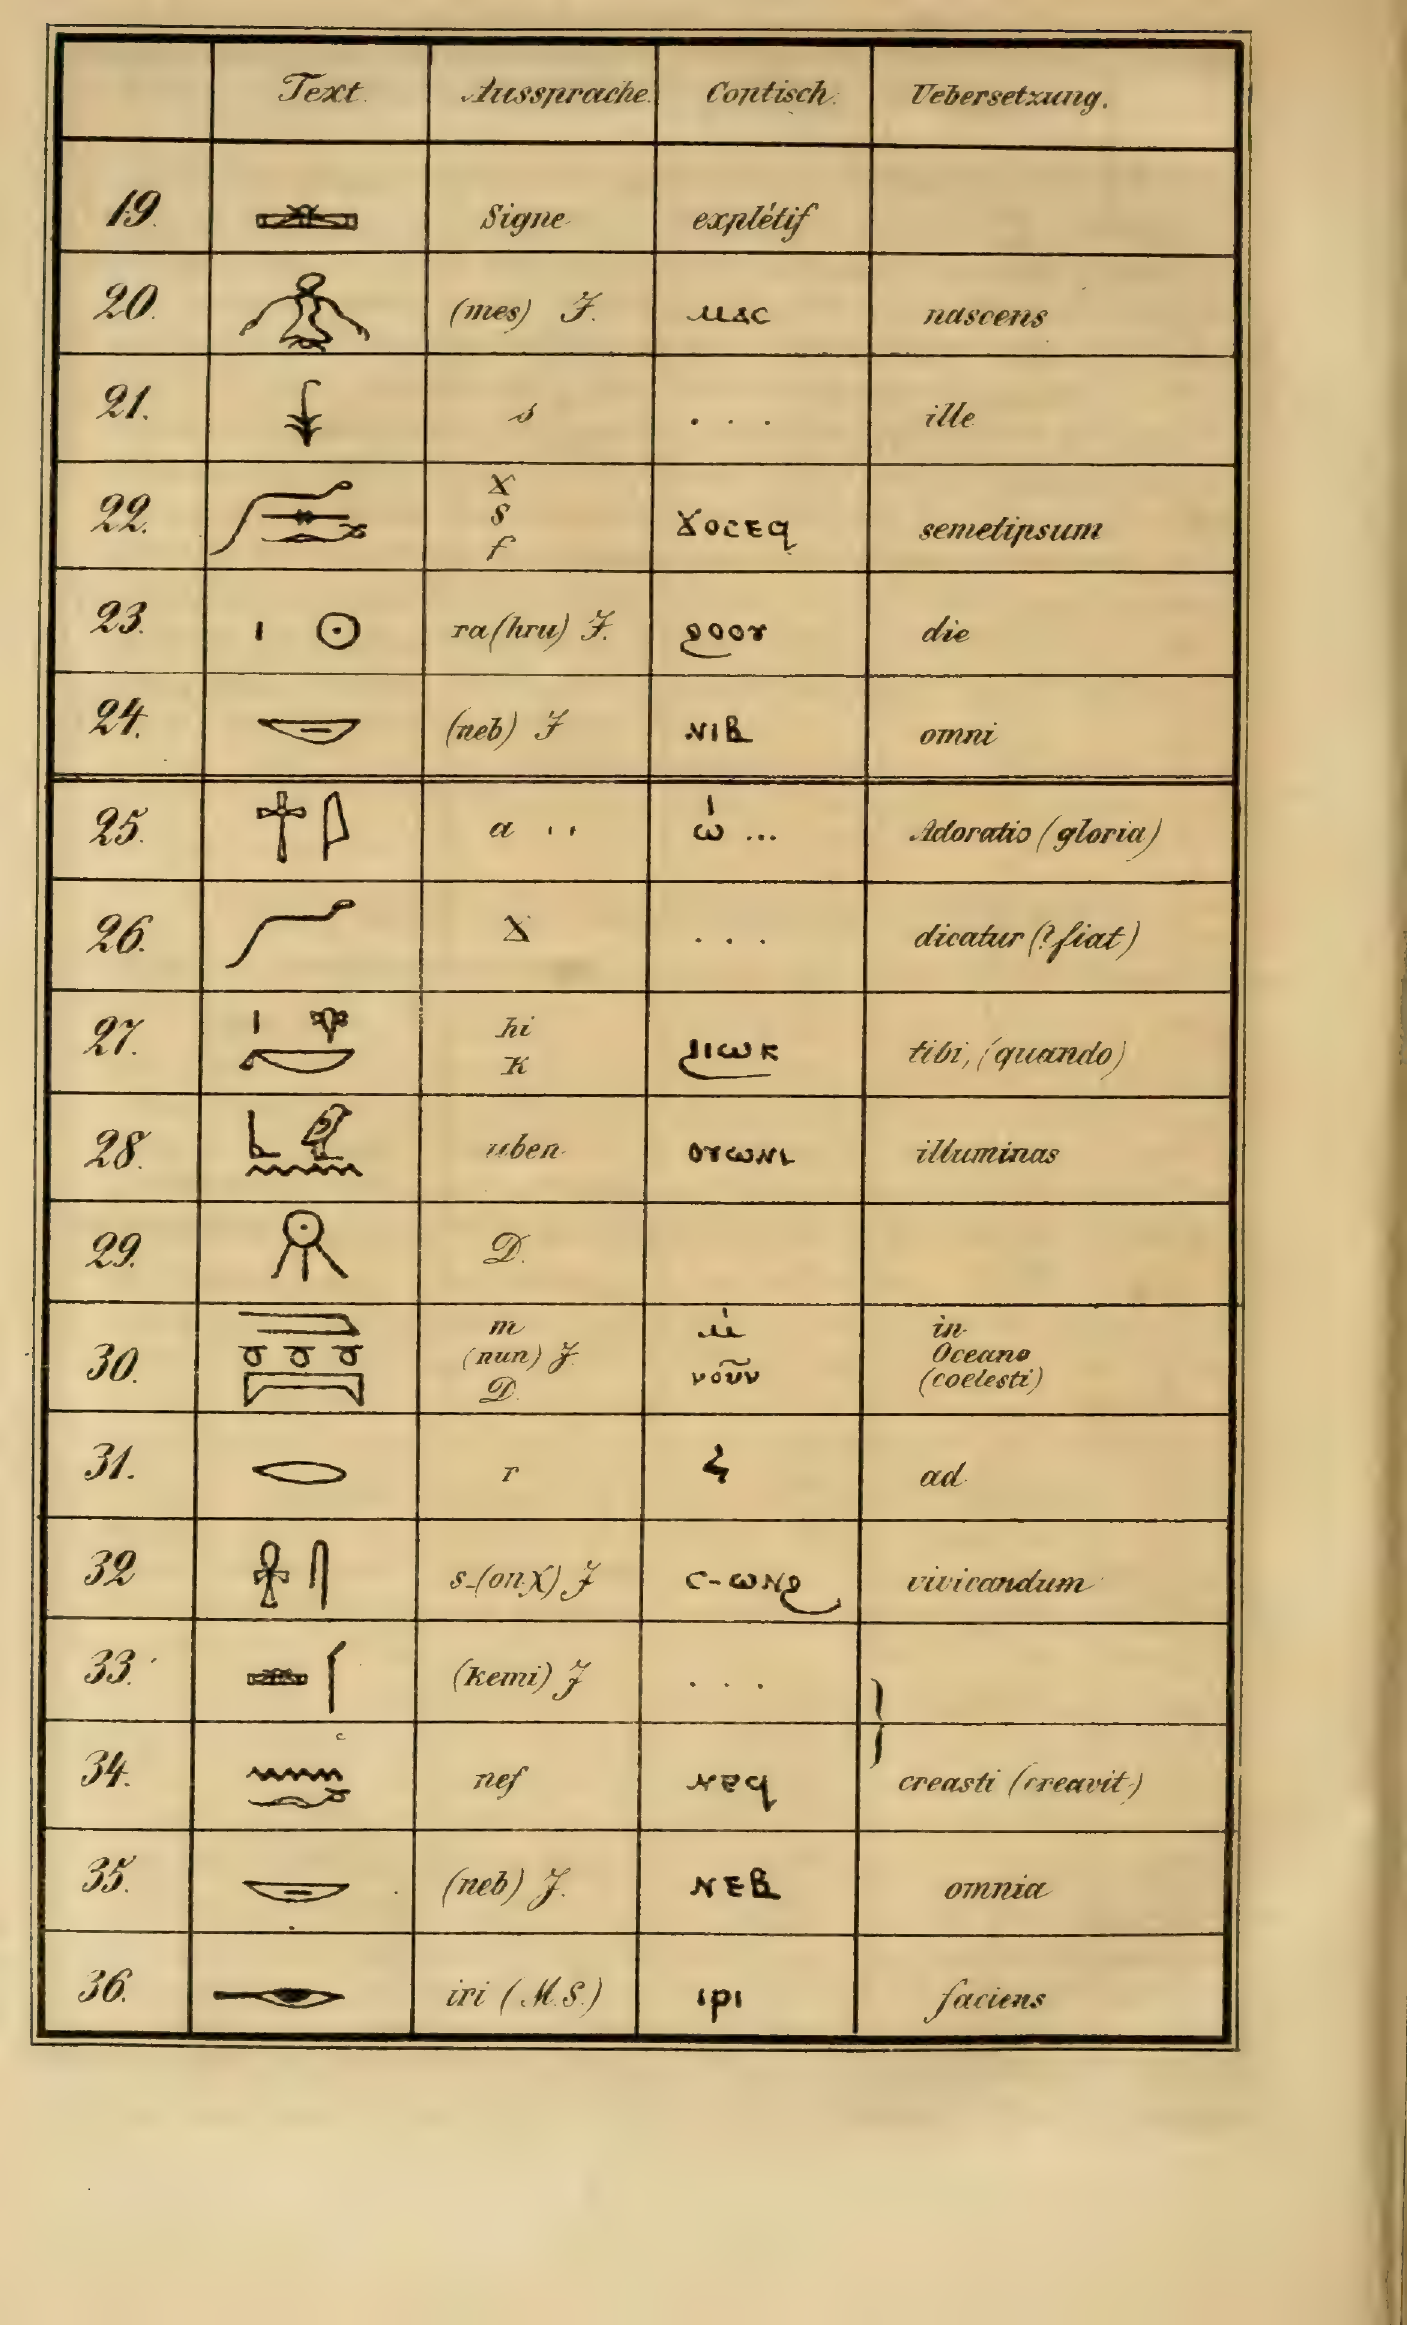 Text. Aussprache. Coptisch. Uebersetzung.
19. Signe explétif
20. (mes) J. ⲙⲁⲥ nascens
21. s . . . ille
22. X
S
f ϫⲟⲥⲉϥ semetipsum
23. ra (hru) J. ϩⲟⲟⲩ die
24. (neb) J ⲛⲓⲃ omni
25. a . . ⲱ̇ ... Adoratio (gloria)
26. Ϫ . . . dicatur (? fiat)
27. hi
K ϩⲓⲱⲕ tibi, (quando)
28. uben ⲟⲩⲱⲛⲓ illuminas
29. D.
30. m
(nun) J.
D. ⲙ̇
νοῦν in
Oceano
(coelesti)
31. r ad
32 s-(onχ) J ⲥ-ⲱⲛϩ vivicandum
33. (kemi) J . . .
34. nef ⲛⲉϥ creasti (creavit)
35. (neb) J. ⲛⲉⲃ omnia
36. iri (M.S.) ⲓⲣⲓ faciens